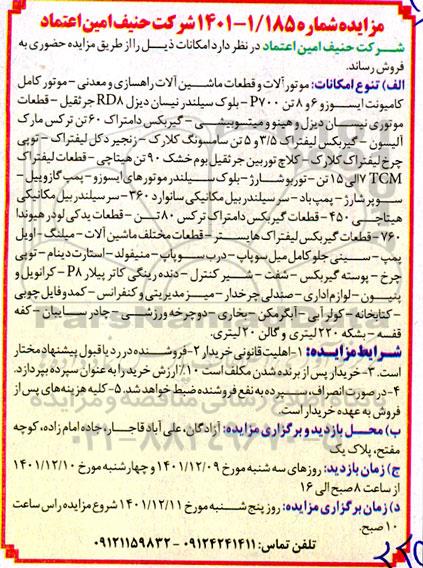 مزایده شماره ۱/۱۸۵-۱۴۰۱ شرکت حنیف امین اعتماد
شرکت حنیف امین اعتماد در نظر دارد امکانات ذیل را از طریق مزایده حضوری به
فروش رساند.
الف) تنوع امکانات: موتور آلات و قطعات ماشین آلات راهسازی و معدنی - موتور کامل
کامیونت ایسوزو ۶ و ۸ تن P۷۰۰ - بلوک سیلندر نیسان دیزل RD۸ جرثقیل - قطعات
موتوری نیسان دیزل و هینو و میتسوبیشی - گیربکس دامتراک ۶۰ تن ترکس مارک
آلیسون - گیربکس لیفتراک ۳/۵ و ۵ تن سامسونگ کلارک - زنجیر دکل لیفتراک - توپی
چرخ لیفتراک کلارک - کلاچ توربین جرثقیل بوم خشک ۹۰ تن هیتاچی - قطعات لیفتراک
TCM ۷ الی ۱۵ تن - توربو شارژ - بلوک سیلندر موتورهای ایسوزو - پمپ گازوییل -
سوپر شارژ - پمپ باد - سرسیلندر بیل مکانیکی سانوارد ۳۶۰ - سر سیلندر بیل مکانیکی
هیتاچی ۴۵۰ - قطعات گیربکس دامتراک ترکس ۸۰ تن - قطعات یدکی لودر هیوندا
۷۶۰ - قطعات گیربکس لیفتراک هایستر - قطعات مختلف ماشین آلات - میلنگ - اویل
پمپ - سینی جلو کامل میل سوپاپ - درب سوپاپ - منیفولد - استارت دینام - توپی
چرخ - پوسته گیربکس - شفت - شیر کنترل - دنده رینگی کاتر پیلار P۸ - کرانویل و
پنیون - لوازم اداری - صندلی چرخدار - میز مدیریتی و کنفرانس - کمد و فایل چوبی
- کتابخانه - کولر آبی - آبگرمکن - بخاری - دوچرخه ورزشی - چادر سایبان - کفه
قفسه - بشکه ۲۲۰ لیتری و گالن ۲۰ لیتری.
شرایط مزایده: ۱- اهلیت قانونی خریدار ۲- فروشنده در رد یا قبول پیشنهاد مختار
است. ۳- خریدار پس از برنده شدن مکلف است ۱۰٪ ارزش خرید را به عنوان سپرده بپردازد.
۴- در صورت انصراف، سپرده به نفع فروشنده ضبط خواهد شد. ۵- کلیه هزینه های پس از
فروش به عهده خریدار است.
ب) محل بازدید و برگزاری مزایده: آزادگان، علی آباد قاجار، جاده امام زاده، کوچه
مفتح، پلاک یک
ج) زمان بازدید: روزهای سه شنبه مورخ ۱۴۰۱/۱۲/۰۹ و چهارشنبه مورخ ۱۴۰۱/۱۲/۱۰
از ساعت ۸ صبح الی ۱۶
د) زمان برگزاری مزایده: روز پنج شنبه مورخ ۱۴۰۱/۱۲/۱۱ شروع مزایده راس ساعت
۱۰ صبح.
تلفن تماس: ۰۹۱۲۴۲۴۱۴۱۱ - ۰۹۱۲۱۱۵۹۸۳۲